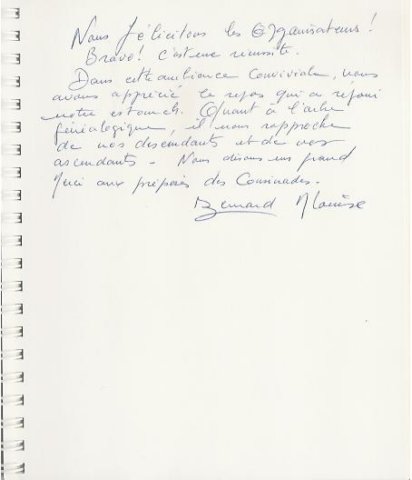 Nous félicitons les Organisateurs !
Bravo ! c'est une réussite.
Dans cette ambiance conviviale, nous
avons apprécié le repas qui a réjoui
notre estomach. Quant à l'arbre
généalogique, il nous rapproche
de nos descendants et de nos
ascendants - Nous disons un grand
Merci aux préposés des Cousinades.
Bernard M Louise